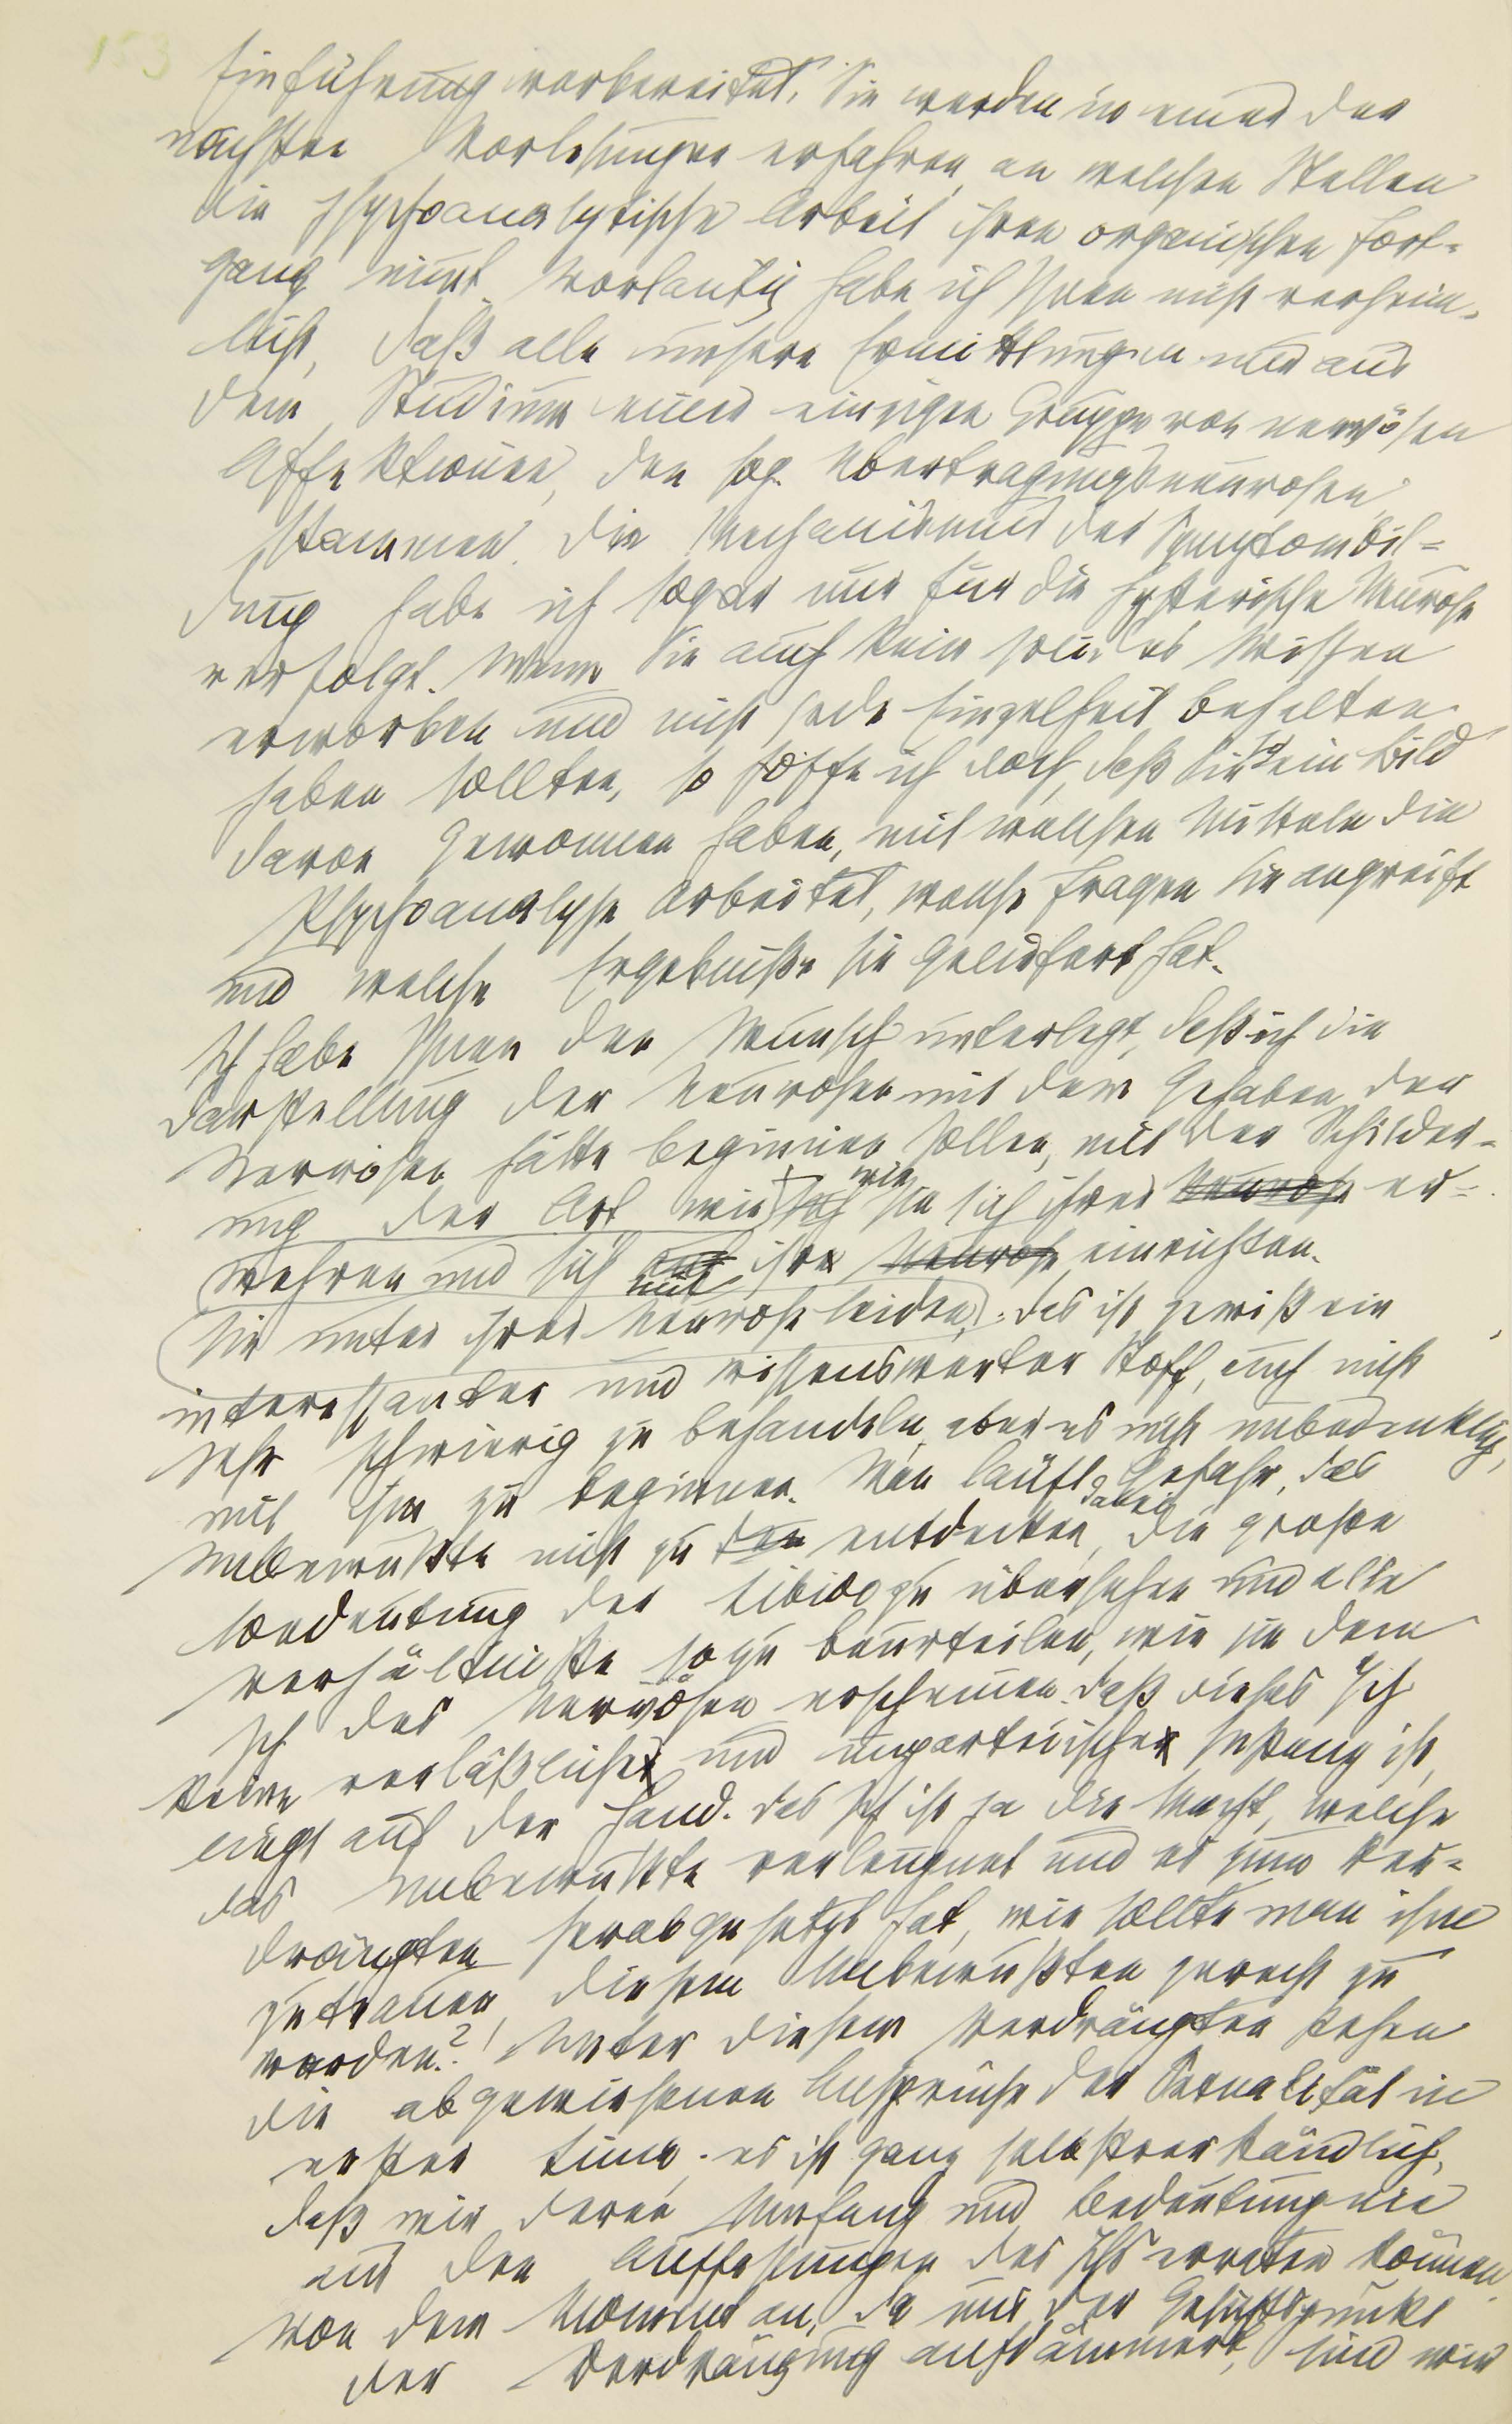 153
Einführung vorbereitet. Sie werden in einer der
nächsten Vorlesungen erfahren, an welchen Stellen
die psychoanalytische Arbeit ihren organischen Fort-
gang nimt. Vorläufig habe ich Ihnen nicht verheim-
licht, daß alle unsere Ermittlungen nur aus
dem Studium einer einzigen Gruppe von nervösen
Affektionen, den sog. Übertragungsneurosen
stammen. Die Mechanismus der Symptombil-
dung habe ich sogar nur für die hysterische Neurose
verfolgt. Wenn Sie auch kein solides Wissen
erworben und nicht jede Einzelheit behalten
haben sollten, so hoffe ich doch, daß Sie so ein Bild
davon gewonnen haben, mit welchen Mitteln die
Psychoanalyse arbeitet, welche Fragen sie angreift
und welche Ergebniße sie geliefert hat.
Ich habe Ihnen den Wunsch unterlegt, daß ich die
Darstellung der Neurosen mit dem Gehaben der
Nervösen hätte beginnen sollen, mit der Schilder-
ung der Art, wie sich wie sie sich ihrer Neurose er-
wehren und sich mit ihre Neurose einrichten.
sie unter ihrer Neurose leiden,. Das ist gewiß ein
interessanter und wissenswerter Stoff, auch nicht
sehr schwierig zu behandeln, aber es nicht unbedenklich,
mit ihm zu beginnen. Man läuft Gefahr, das
Unbewußte nicht zu entdecken, dabei die große
Bedeutung der Libido zu übersehen und alle
Verhältniße so zu beurteilen, wie sie dem
Ich des Nervösen erscheinen. Daß dieses Ich
keine verläßliche und unparteiische Instanz ist,
liegt auf der Hand. Das Ich ist ja die Macht, welche
das Unbewußte verleugnet und es zum Ver-
drängten herabgesetzt hat, wie sollte man ihm
zutrauen, diesem Unbewußten gerecht zu
werden?! Unter diesem Verdrängten stehen
die abgewiesenen Ansprüche der Sexualität in
erster Linie; es ist ganz selbstverständlich,
daß wir deren Umfang und Bedeutung nie
aus den Auffassungen des Ichs erraten können.
Von dem Moment an, da uns der Gesichtspunkt
der Verdrängung aufdämmert, sind wir